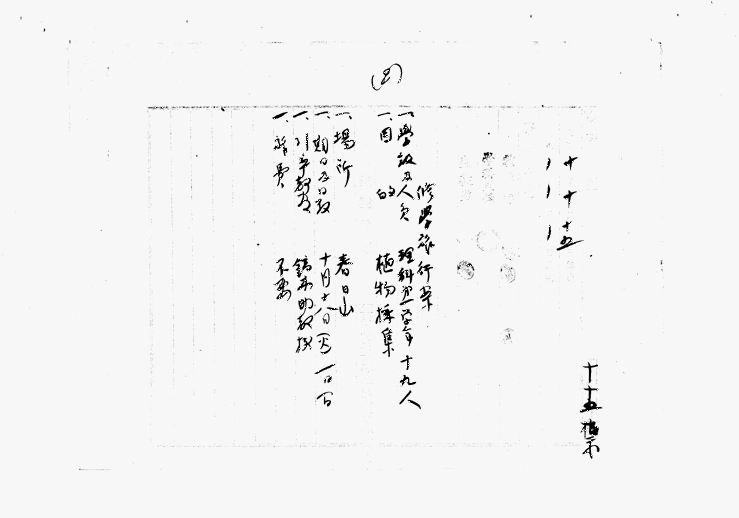 十、十、十五
十、十五 掲示
(五)
修學旅行案
一、學級及人員 理科第一学年 十九人
一、目的 植物採集
一、場所 春日山
一、期日及日数 十月十八日(火)一日間
一、引率教官 助教授
一、旅費 不要